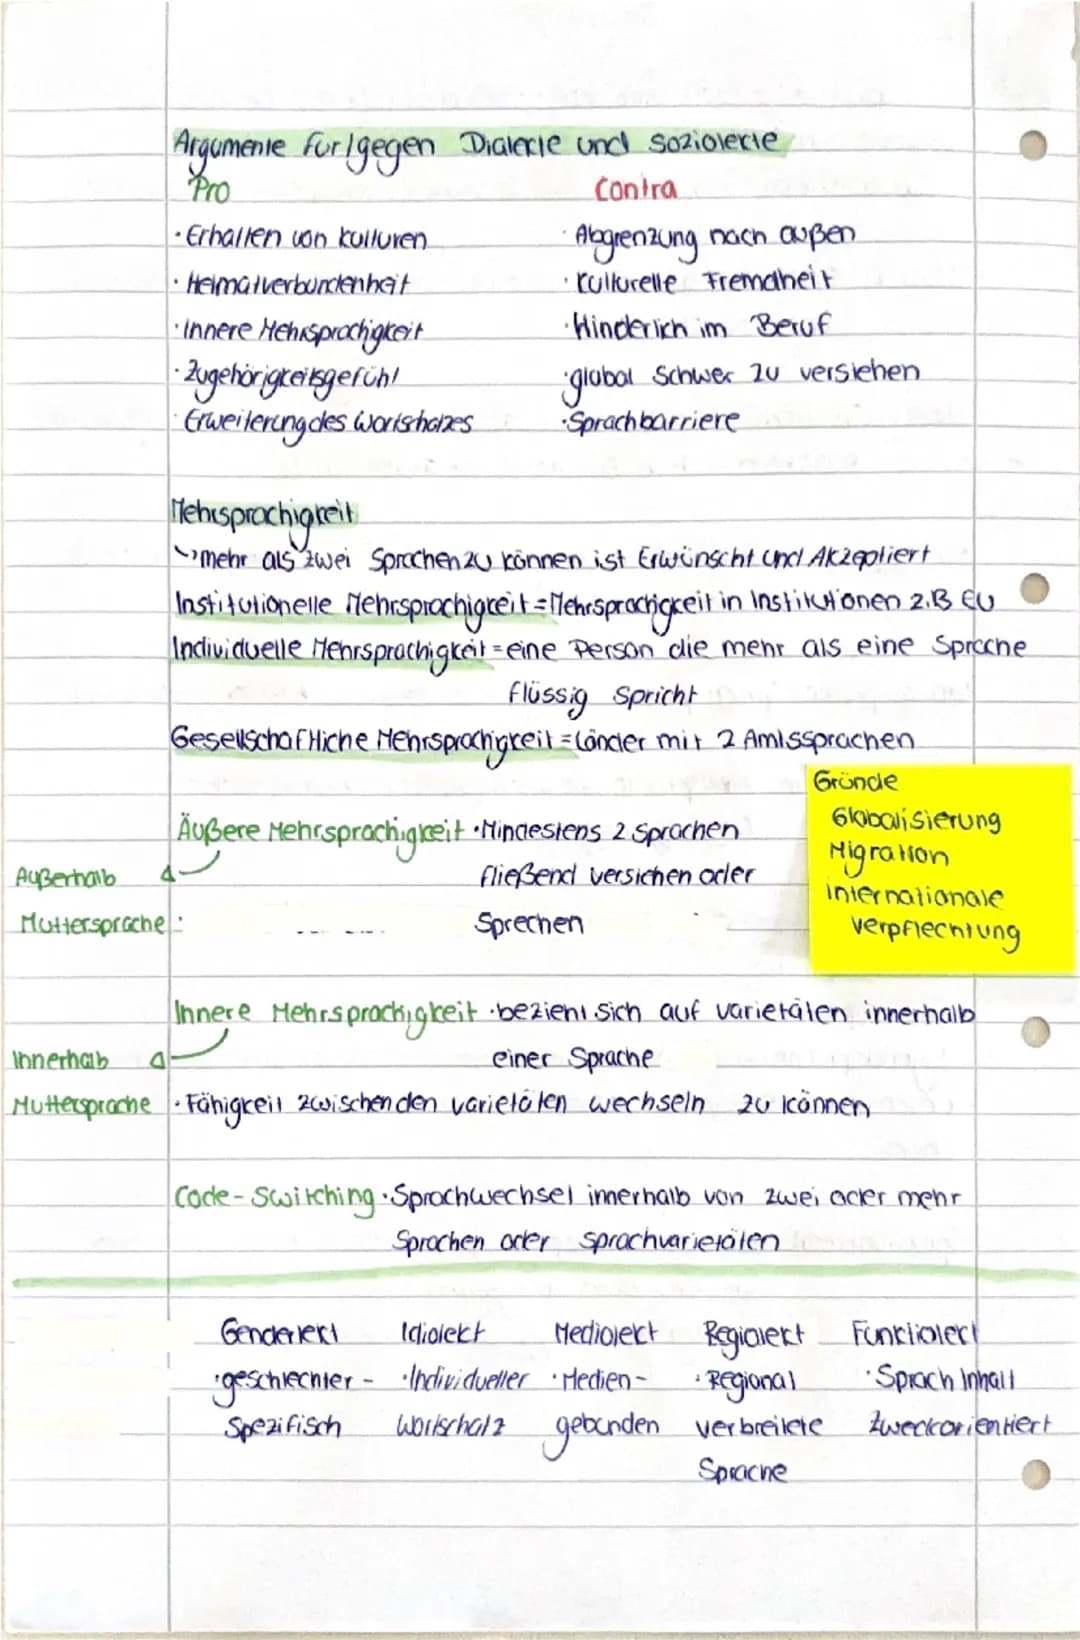 Argumente für/gegen Dialekte und Soziolekte
Pro
Contra
· Erhalten von Kulturen
· Heimatverbundenheit
· Innere Mehrsprachigkeit
· Zugehörigkeitsgefühl
· Erweiterung des Wortschatzes
· Abgrenzung nach außen
· Kulturelle Fremdheit
· Hinderlich im Beruf
· global Schwer zu verstehen
· Sprachbarriere
Mehrsprachigkeit
↳ mehr als zwei Sprachen zu können ist Erwünscht und Akzeptiert
Institutionelle Mehrsprachigkeit = Mehrsprachigkeit in Institutionen z.B EU
Individuelle Mehrsprachigkeit = eine Person die mehr als eine Sprache
flüssig Spricht
Gesellschaftliche Mehrsprachigkeit = Länder mit 2 Amtssprachen
Gründe
Globalisierung
Migration
internationale
Verpflechtung
Äußere Mehrsprachigkeit · Mindestens 2 Sprachen
fließend verstehen oder
Sprechen
Außerhalb
Muttersprache
Innere Mehrsprachigkeit · bezieht sich auf varietäten innerhalb
einer Sprache
Innerhalb
Muttersprache
· Fähigkeit zwischen den varietäten wechseln zu können
Code-Switching · Sprachwechsel innerhalb von zwei oder mehr
Sprachen oder sprachvarietäten
Genderlekt Idiolekt Mediolekt Regiolekt Funktiolekt
· geschlechter- · Individueller · Medien- · Regional · Sprach Inhalt
Spezifisch Wortschatz gebunden verbreitete zweckorientiert
Sprache